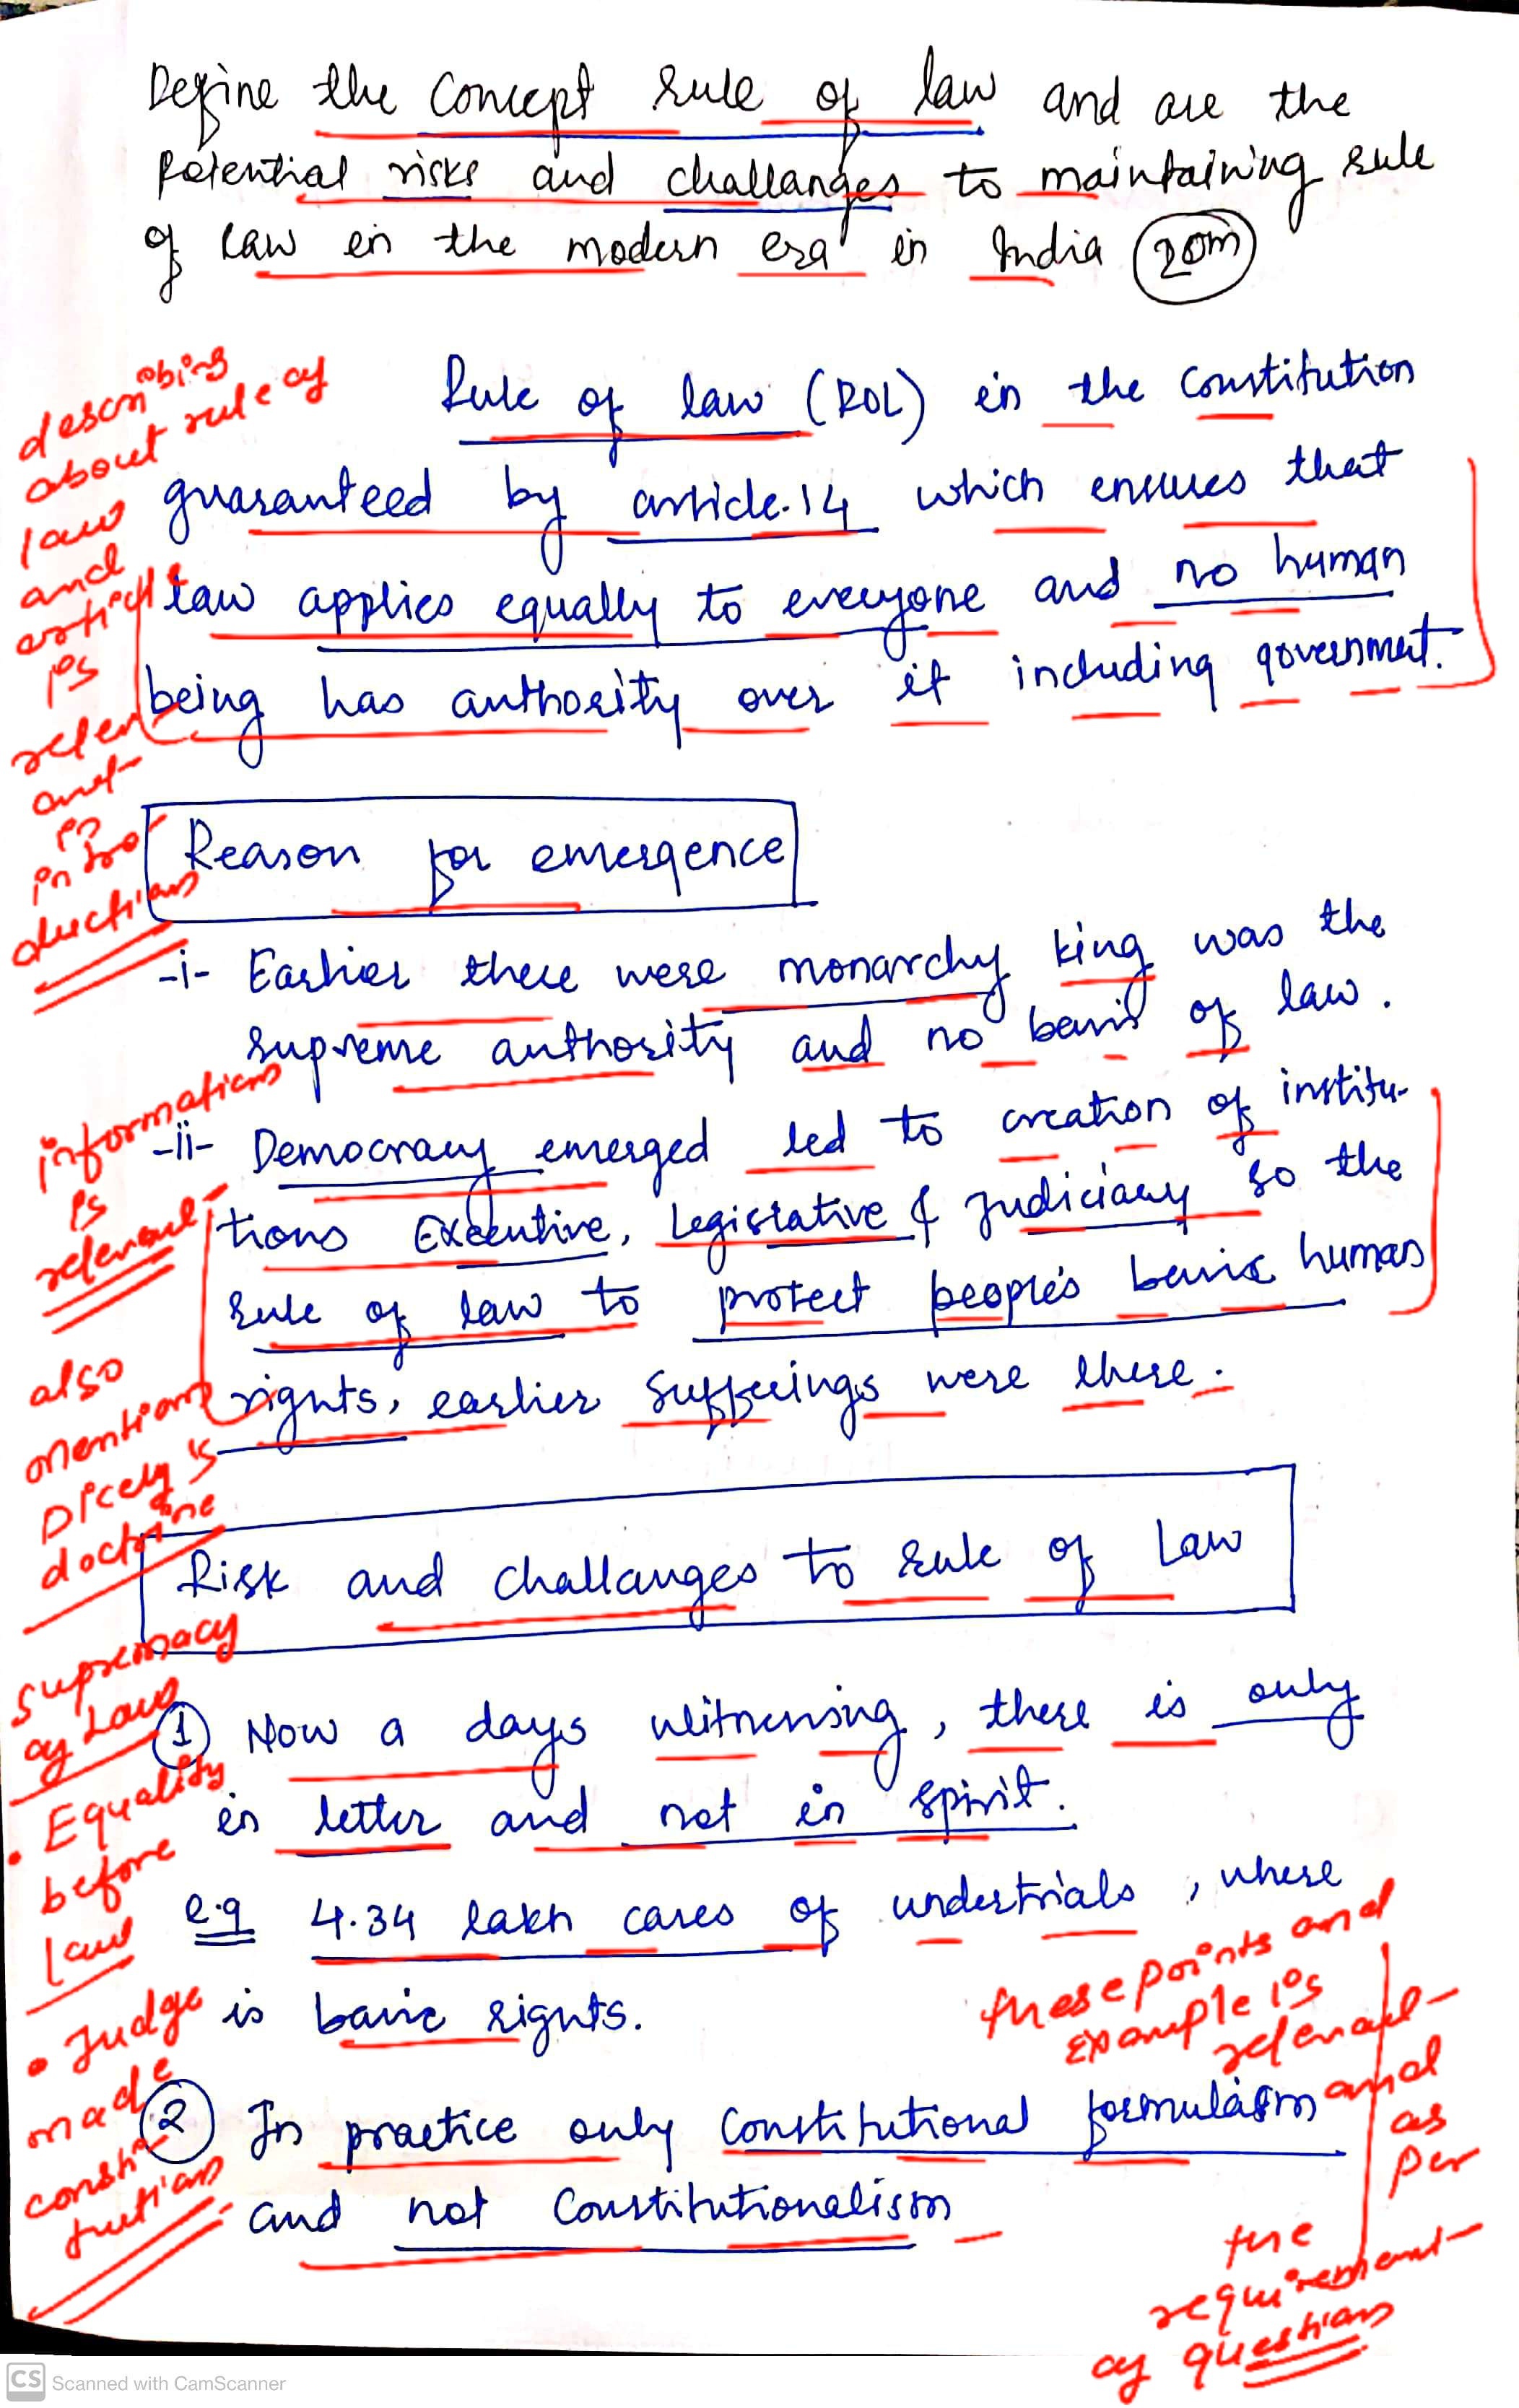 Define the concept rule of law and are the
Potential risks and challanges to maintaining rule
of law in the modern era in India (20m)
describing
about rule of
law
and
article
is
relevant
in
introduction
Rule of law (ROL) in the constitution
guaranteed by article.14 which ensures that
law applies equally to everyone and no human
being has authority over it including government.
Reason for emergence
-i- Earlier there were monarchy king was the
supreme authority and no basis of law.
-ii- Democracy emerged led to creation of institu-
tions Executive, Legistative & Judiciary so the
rule of law to protect people's basic human
rights, earlier sufferings were there.
information
is
relevant
also
mention
Dicely's
doctrine
Supremacy
of Law
• Equality
before
law
• Judge
made
consti-
tution
Risk and challanges to rule of Law
① Now a days witnessing, there is only
in letter and not in spirit.
e.g 4.34 lakh cases of undertrials, where
is basic rights.
② In practice only Constitutional formulaism
and not Constitutionalism
these points and
example is
relevant
and
as
per
the
requirement
of question
CS Scanned with CamScanner